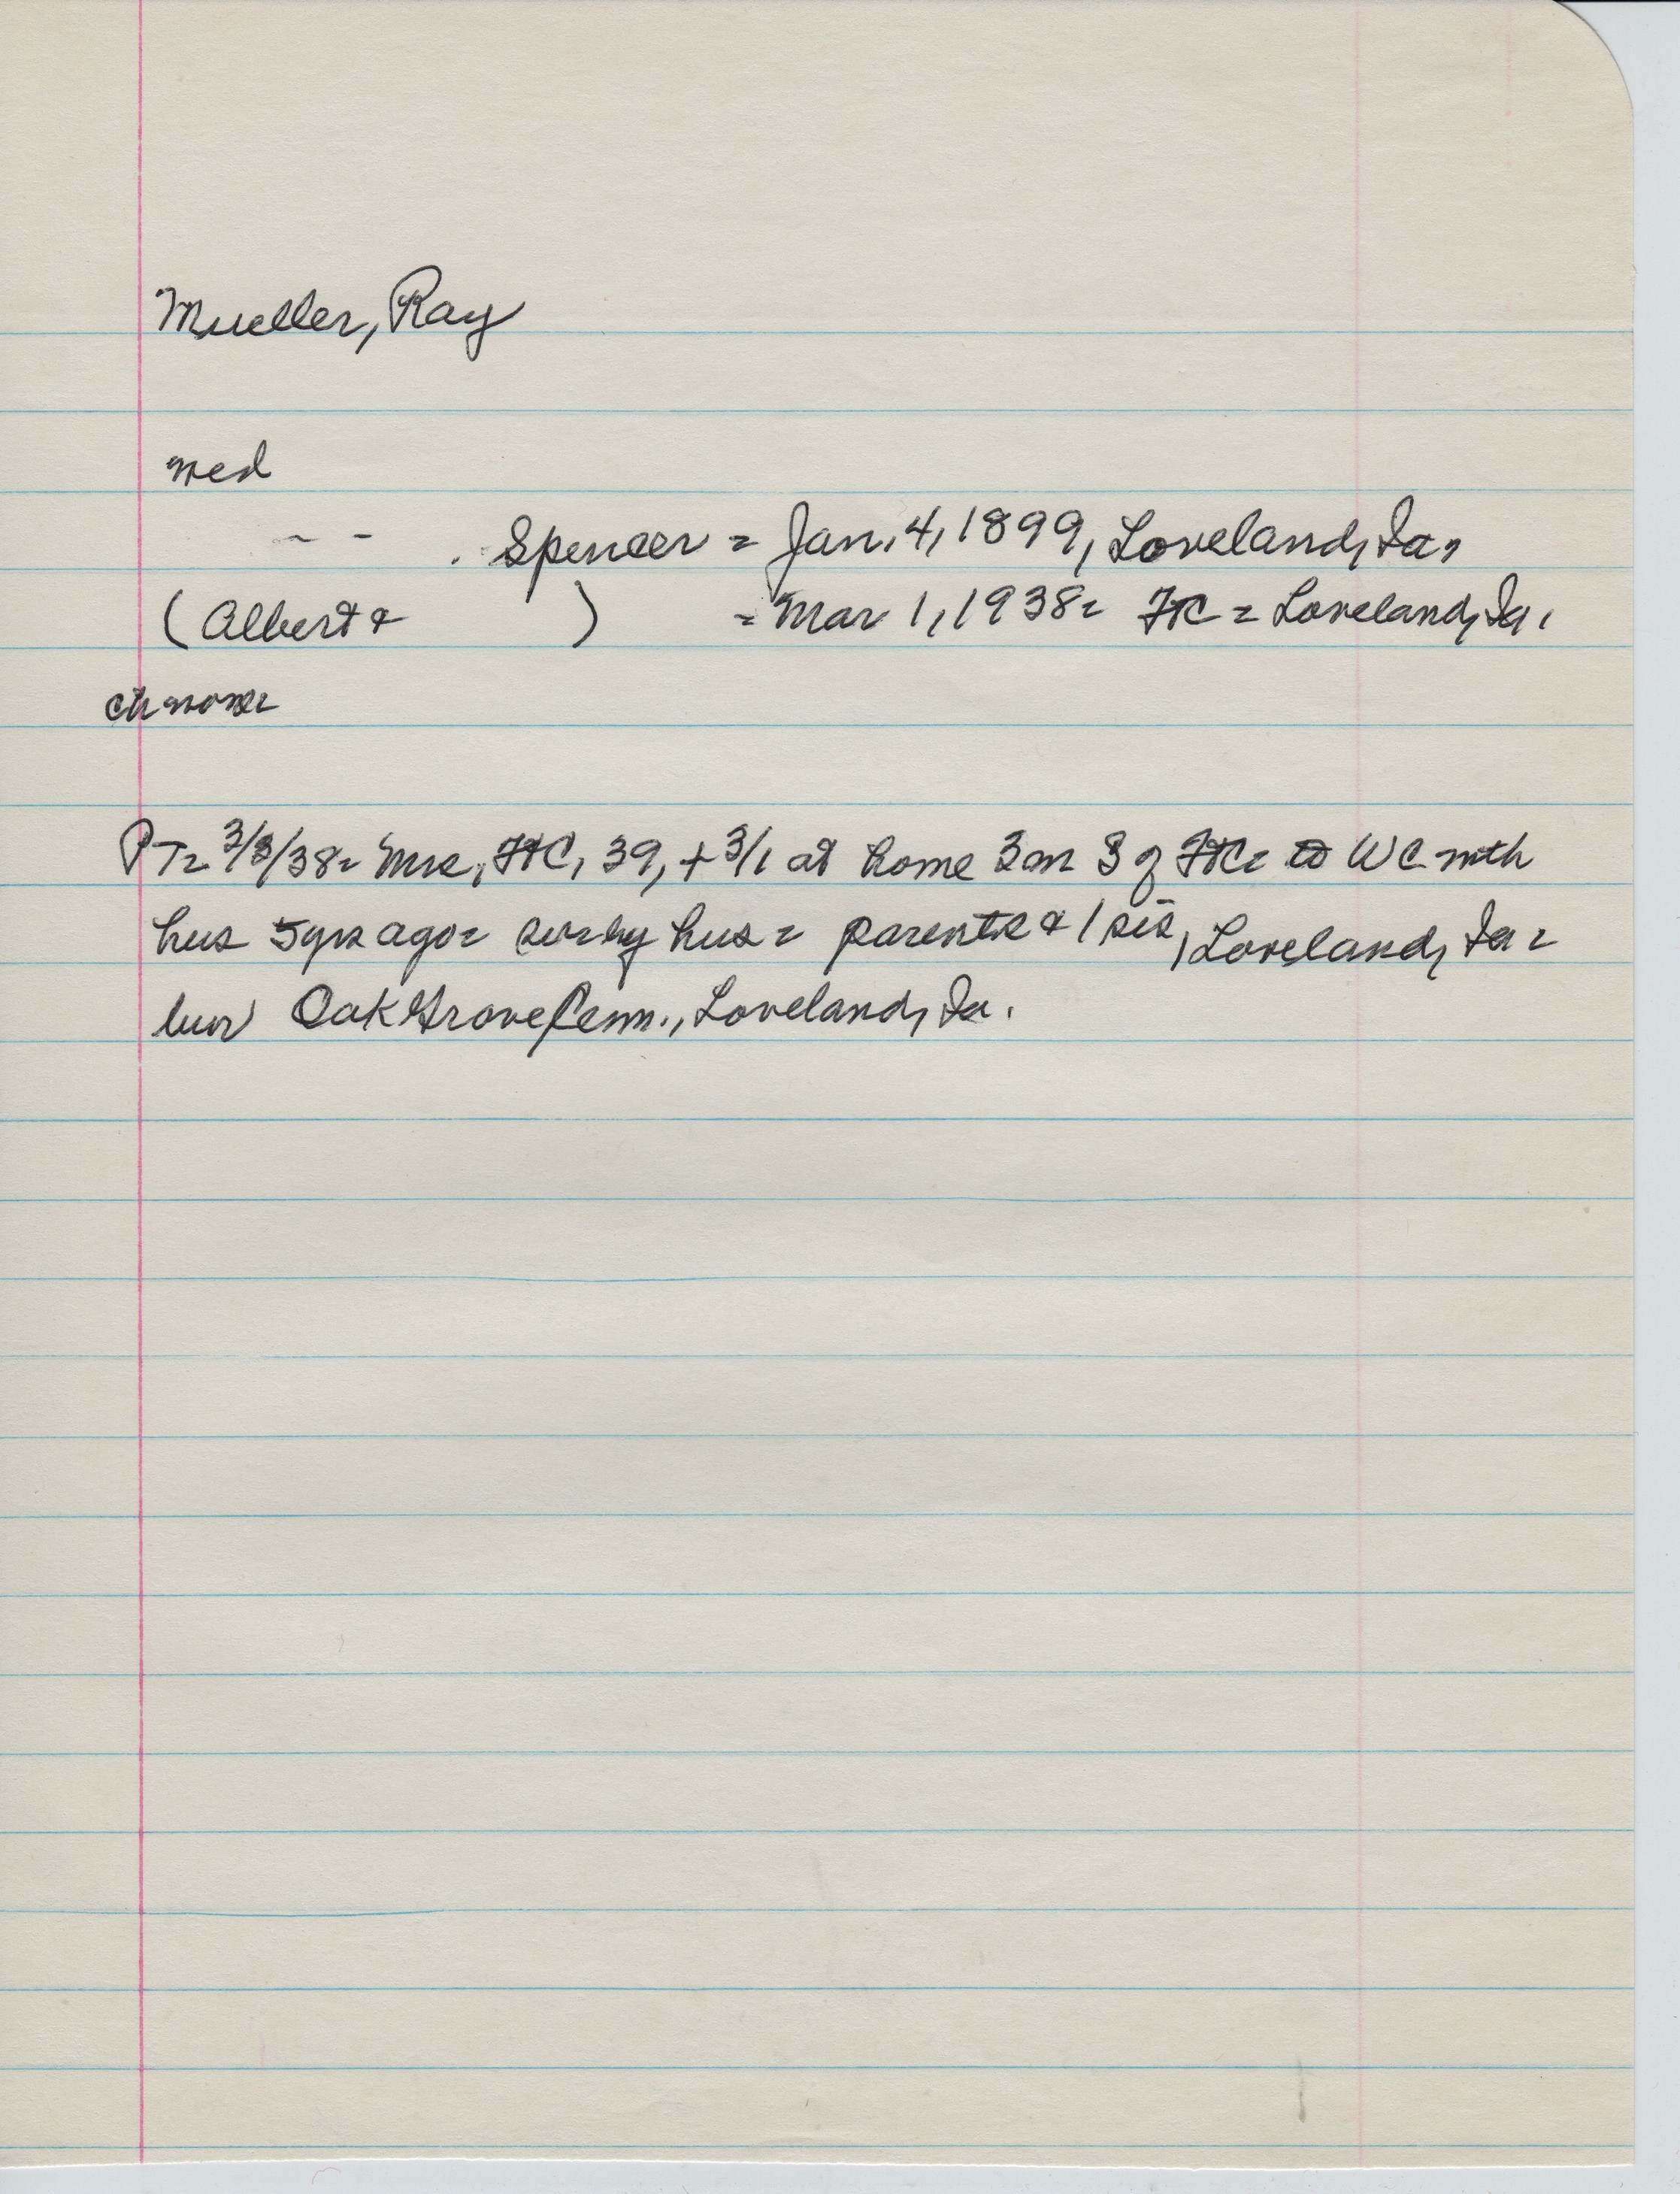 Mueller, Ray
wed
- - . Spencer = Jan. 4, 1899, Loveland, Ia,
(Albert & ) = Mar 1, 1938 = FC = Loveland, Ia.
ch none
PT = 3/3/38 = Mrs, FC, 39, + 3/1 at home 3 mi S of FC = to WC with
hus 5 yrs ago = sur by hus = parents & 1 sis, Loveland, Ia =
bur Oak Grove Cem., Loveland, Ia.